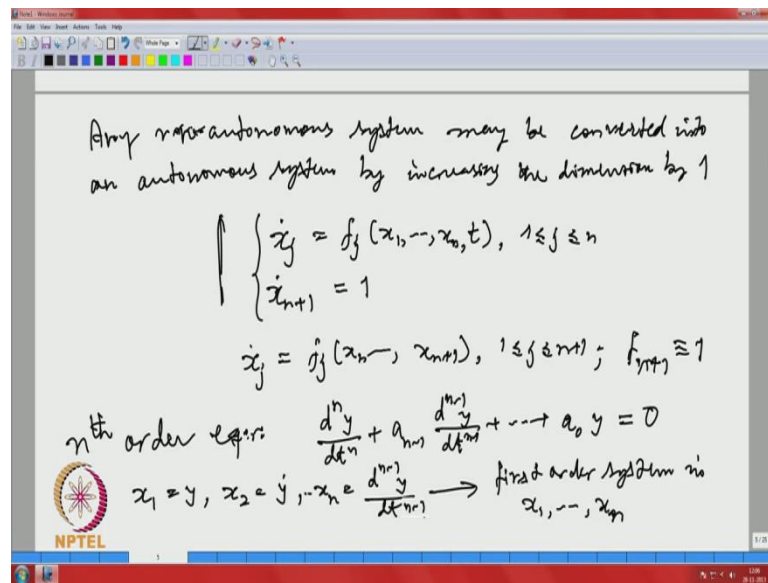 Note1 - Windows Journal
File Edit View Insert Actions Tools Help
Whole Page
Any non-autonomous system may be converted into
an autonomous system by increasing the dimension by 1
ẋ_j = f_j (x_1, --, x_n, t), 1 ≤ j ≤ n
ẋ_{n+1} = 1
ẋ_j = f_j (x_1, --, x_{n+1}), 1 ≤ j ≤ n+1 ; f_{n+1} ≡ 1
n^th order eqn: d^n y/dt^n + a_{n-1} d^{n-1} y/dt^{n-1} + --- + a_0 y = 0
x_1 = y, x_2 = ẏ, .. x_n = d^{n-1} y/dt^{n-1} → first order system in
x_1, --, x_n
NPTEL
5
5/28
12:06